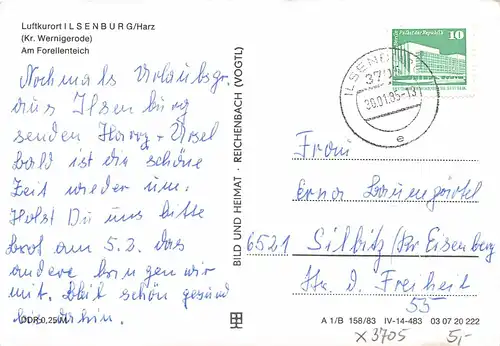 Luftkurort ILSENBURG/Harz
(Kr. Wernigerode)
Am Forellenteich
Nochmals Urlaubsgr.
aus Ilsenburg
senden Harry + Ursel
bald ist die schöne
Zeit wieder um.
Holst Du uns bitte
Brot am 5.2. das
andere bringen wir
mit. Bleib schön gesund
bis dahin.
DDR 0,25 M
BILD UND HEIMAT · REICHENBACH (VOGTL)
Palast der Republik
10
ILSENBURG
3705
e
Frau
Erna
6521 Silbitz (Kr Eisenberg
Str. d. Freiheit
55
A 1/B 158/83 IV-14-483 03 07 20 222
x 3705 5,-